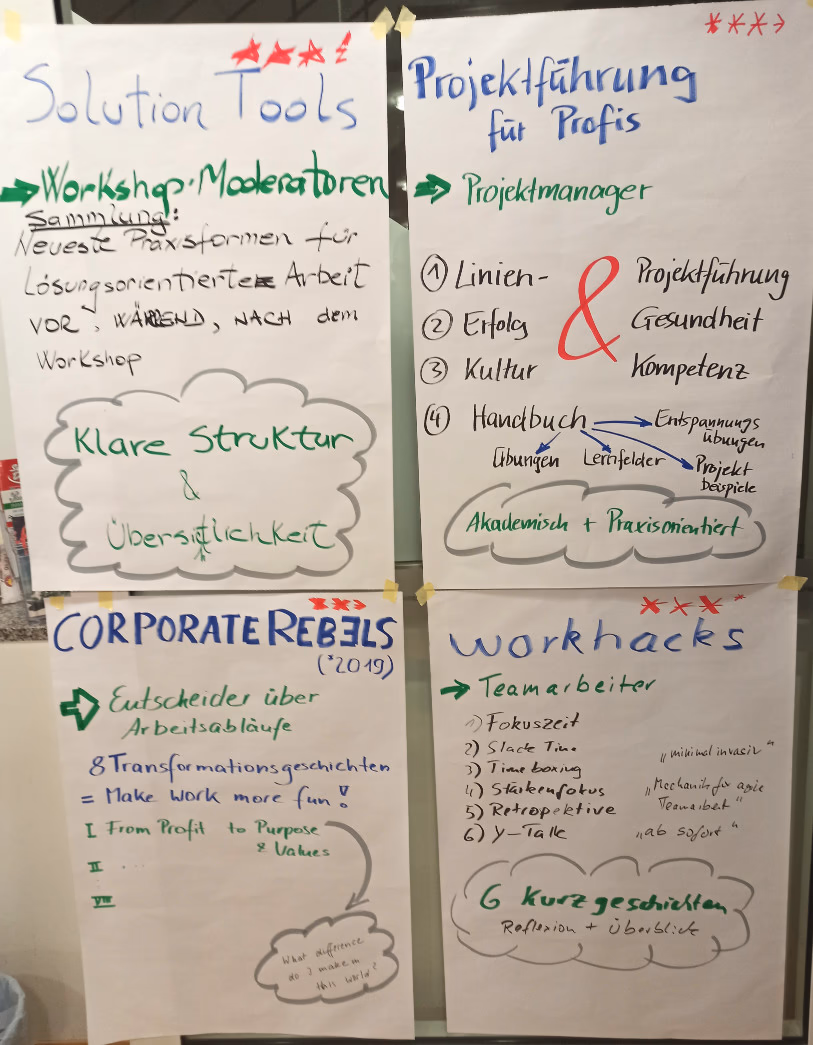 Solution Tools
Workshop-Moderatoren
Sammlung:
Neueste Praxisformen für
Lösungsorientierte Arbeit
VOR, WÄHREND, NACH dem
Workshop
Klare Struktur
&
Übersichtlichkeit
Projektführung
für Profis
Projektmanager
① Linien- & Projektführung
② Erfolg Gesundheit
③ Kultur Kompetenz
④ Handbuch
Entspannungs
übungen
Übungen Lernfelder Projekt
beispiele
Akademisch + Praxisorientiert
CORPORATE REBELS
(*2019)
Entscheider über
Arbeitsabläufe
8 Transformationsgeschichten
= Make work more fun!
I From Profit to Purpose
& Values
II ...
VIII
What difference
do I make in
this world?
workhacks
Teamarbeiter
1) Fokuszeit
2) Slack Time
3) Timeboxing
4) Stärkenfokus
5) Retropektive
6) Y-Talk
„minimal invasiv“
„Mechanik für agile
Teamarbeit“
„ab sofort“
6 Kurzgeschichten
Reflexion + Überblick